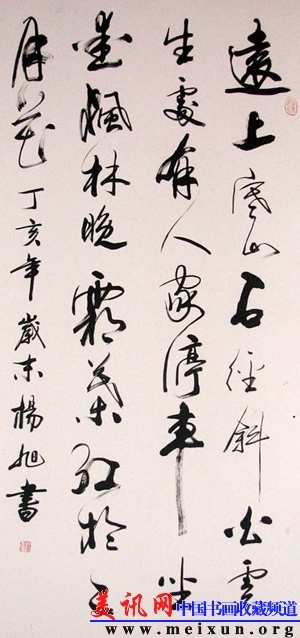 遠上寒山石徑斜白雲
生處有人家停車坐
愛楓林晚霜葉紅於二
月花丁亥年歲末楊旭書
美讯网 中国书画收藏频道
www.meixun.org